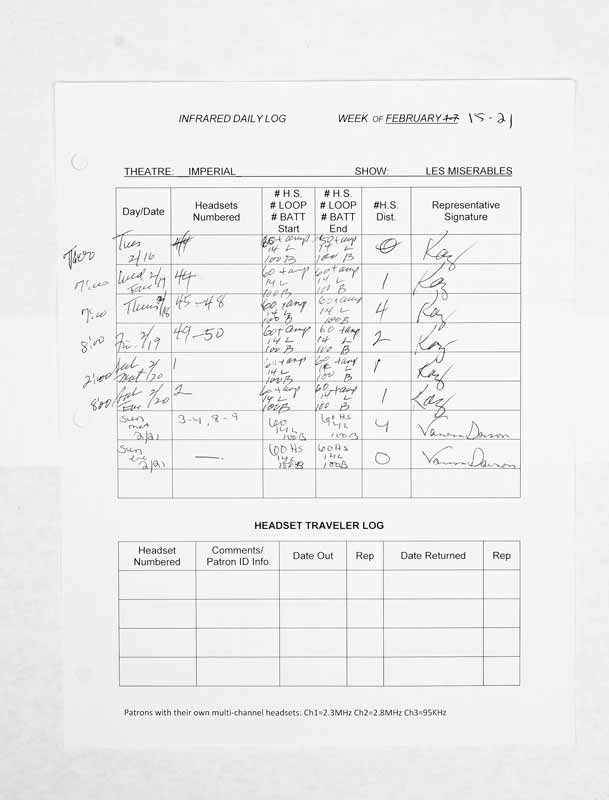 INFRARED DAILY LOG WEEK OF FEBRUARY 17 15-21
THEATRE: IMPERIAL SHOW: LES MISERABLES
Day/Date Headsets Numbered # H.S. # LOOP # BATT Start # H.S. # LOOP # BATT End #H.S. Dist. Representative Signature
Tues 2/16 60+amp 14 L 100 B 60+amp 14 L 100 B 0 Kay
7:00 Wed 2/17 Eve 44 60+amp 14 L 100 B 60+amp 14 L 100 B 1 Kay
7:00 Thurs 2/18 45-48 60+amp 14 L 100 B 60+amp 14 L 100 B 4 Kay
8:00 Fri 2/19 49-50 60+amp 14 L 100 B 60+amp 14 L 100 B 2 Kay
2:00 Sat Mat 2/20 1 60+amp 14 L 100 B 60+amp 14 L 100 B 1 Kay
8:00 Sat Eve 2/20 2 60+amp 14 L 100 B 60+amp 14 L 100 B 1 Kay
Sun mat 2/21 3-4, 8-9 60 14 L 100 B 60 HS 14 L 100 B 4 Vanessa Dawson
Sun eve 2/21 — 60 HS 14 L 100 B 60 HS 14 L 100 B 0 Vanessa Dawson
HEADSET TRAVELER LOG
Headset Numbered Comments/ Patron ID Info Date Out Rep Date Returned Rep
Patrons with their own multi-channel headsets: Ch1=2.3MHz Ch2=2.8MHz Ch3=95KHz